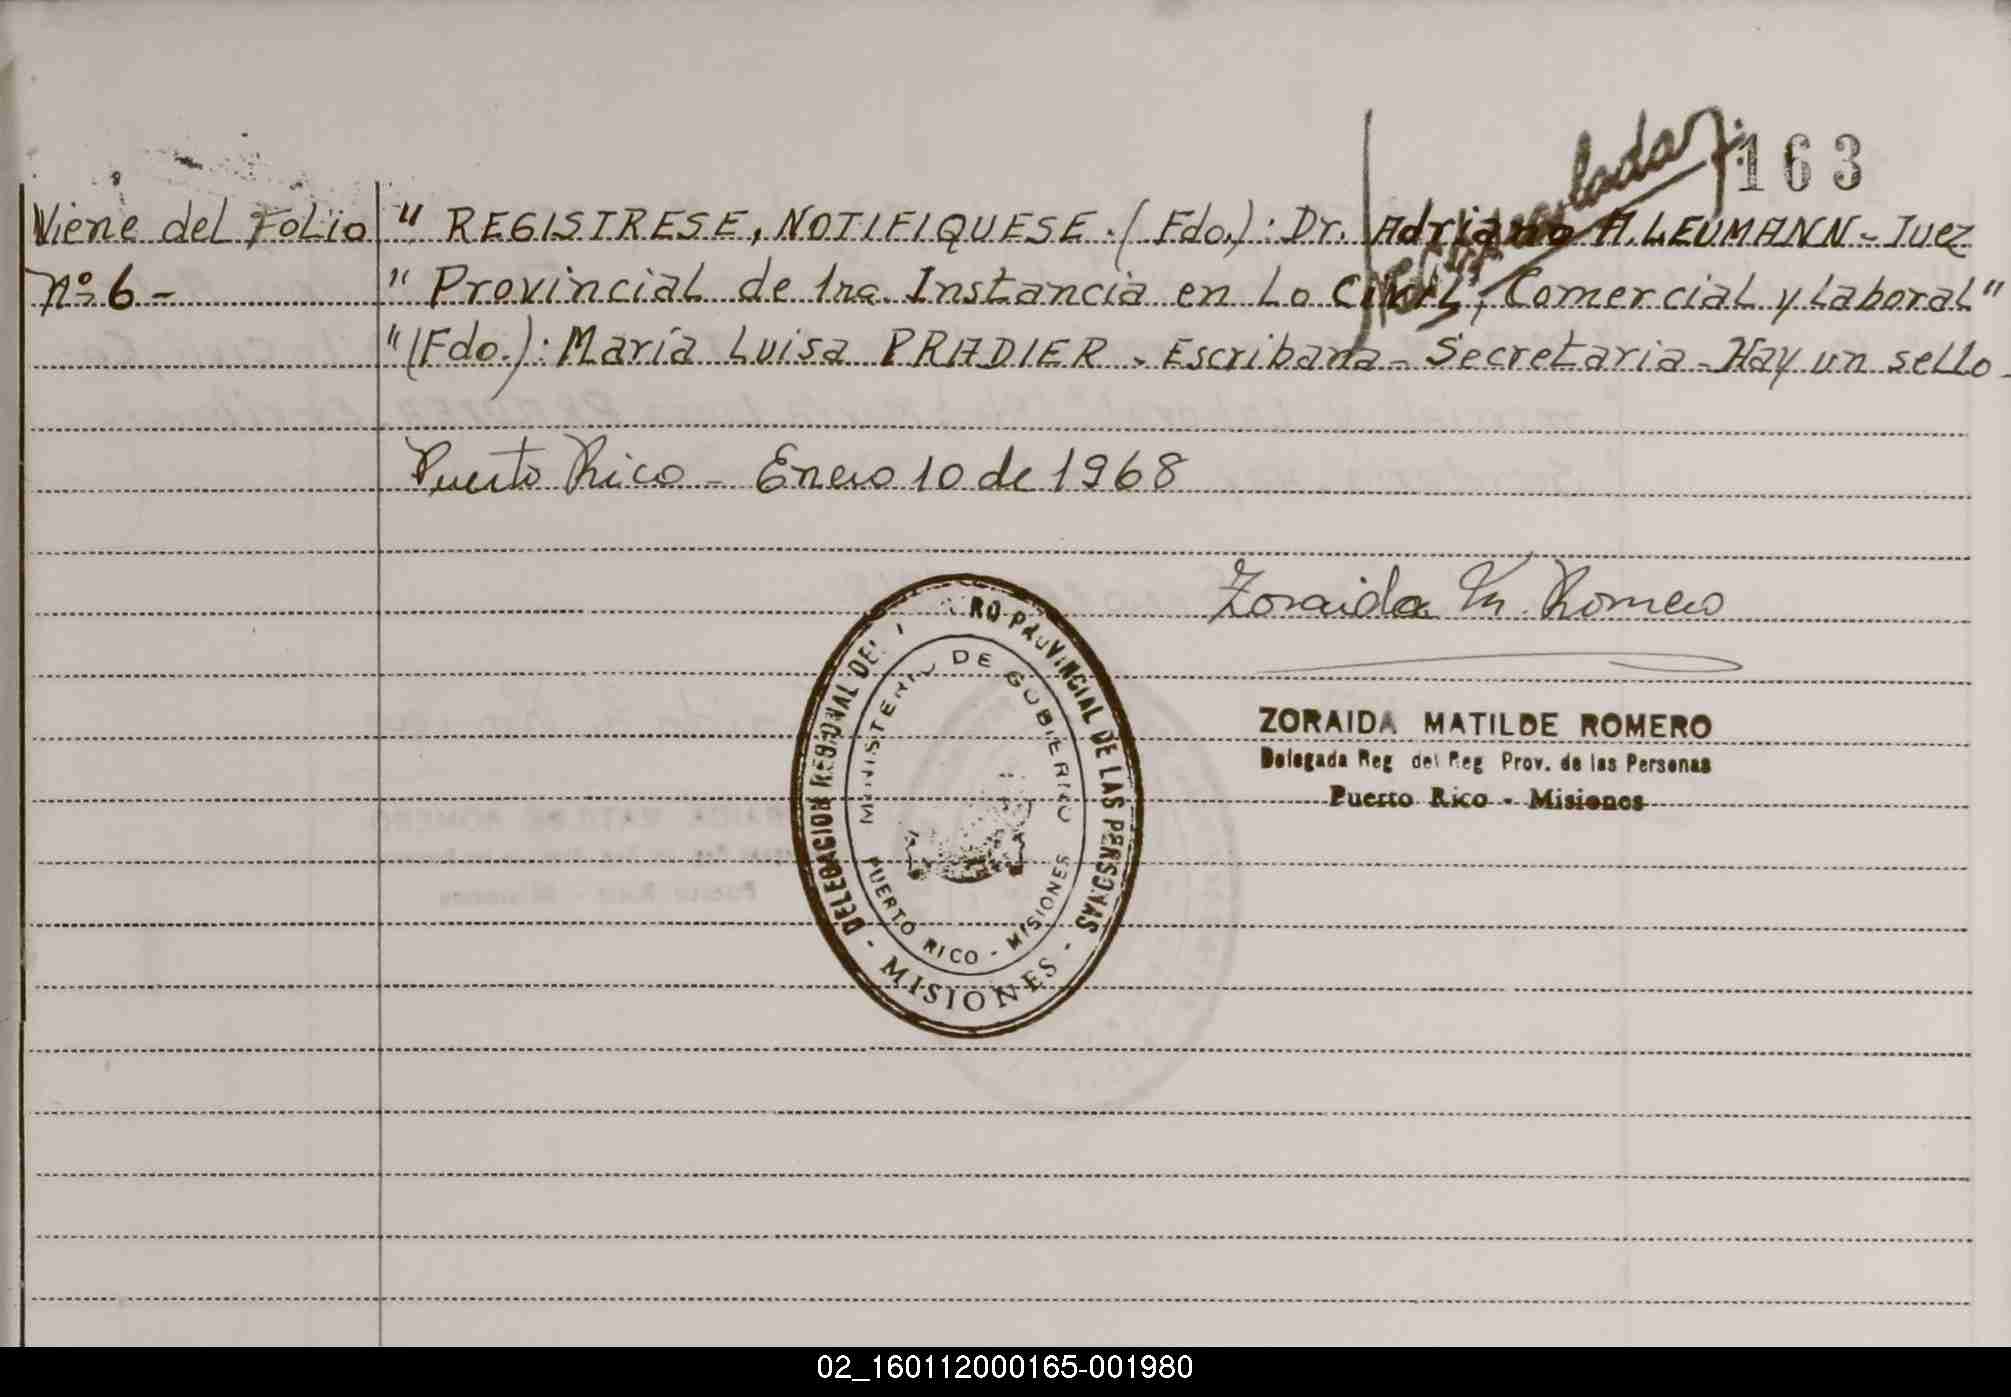 163
Viene del Folio " REGISTRESE, NOTIFIQUESE. (Fdo.): Dr. Adriano A. LEUMANN - Juez
Nº 6 - " Provincial de 1ra. Instancia en Lo Civil, Comercial y Laboral"
"(Fdo.): María Luisa PRADIER - Escribana - Secretaria - Hay un sello -
Puerto Rico - Enero 10 de 1968
Zoraida M. Romero
ZORAIDA MATILDE ROMERO
Delegada Reg del Reg Prov. de las Personas
Puerto Rico - Misiones
DELEGACION REGIONAL DEL RO PROVINCIAL DE LAS PERSONAS
- MISIONES -
MINISTERIO DE GOBIERNO
PUERTO RICO - MISIONES
02_160112000165-001980